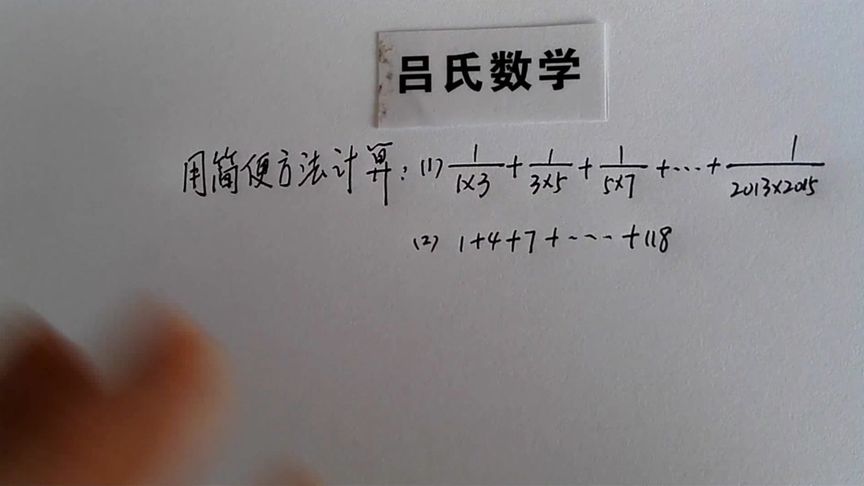 吕氏数学
用简便方法计算：(1) 1/1×3 + 1/3×5 + 1/5×7 + ... + 1/2013×2015
(2) 1+4+7+----+118